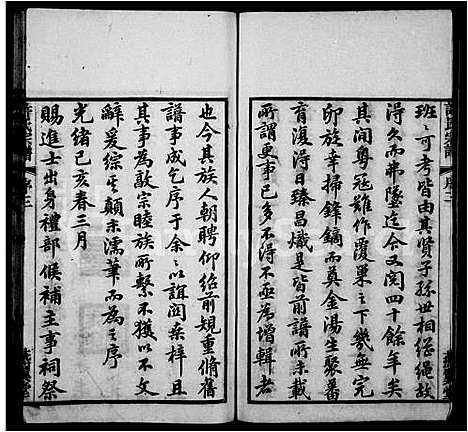 班〻可考皆由其賢子孫世相繼繩故
得久而弗墜迄今又閱四十餘年矣
其間粵寇難作覆巢之下幾無完
卵族幸掃鋒鏑而奠金湯生聚蕃
育復得日臻昌熾是皆前譜
所謂更事已多不得不亟為增輯者
也今其族人朝聘仰紹前規重脩舊
譜事成乞序于余〻以誼関桑梓且
其事為敦宗睦族所繫不獲以不文
辭爰綜其顛末濡筆而為之序
光緒己亥春三月
賜進士出身禮部候補主事祠祭
序三